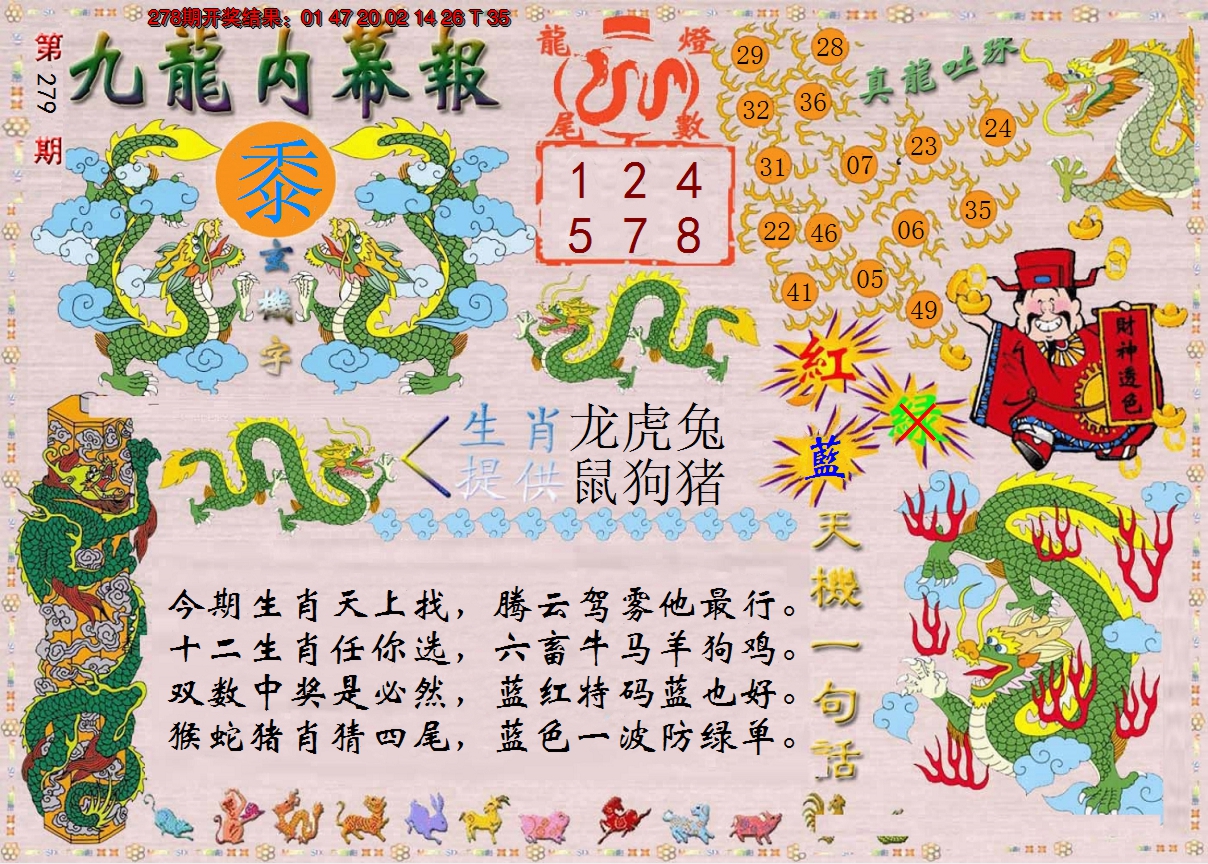 278期开奖结果：01 47 20 02 14 26 T 35
第279期
九龍内幕報
黍
玄機字
龍燈
尾數
1 2 4
5 7 8
真龍吐珠
29 28
32 36
23 24
31 07
35
22 46 06
41 05
49
紅
绿
藍
財神透色
生肖 龙虎兔
提供 鼠狗猪
天機一句話
今期生肖天上找，腾云驾雾他最行。
十二生肖任你选，六畜牛马羊狗鸡。
双数中奖是必然，蓝红特码蓝也好。
猴蛇猪肖猜四尾，蓝色一波防绿单。